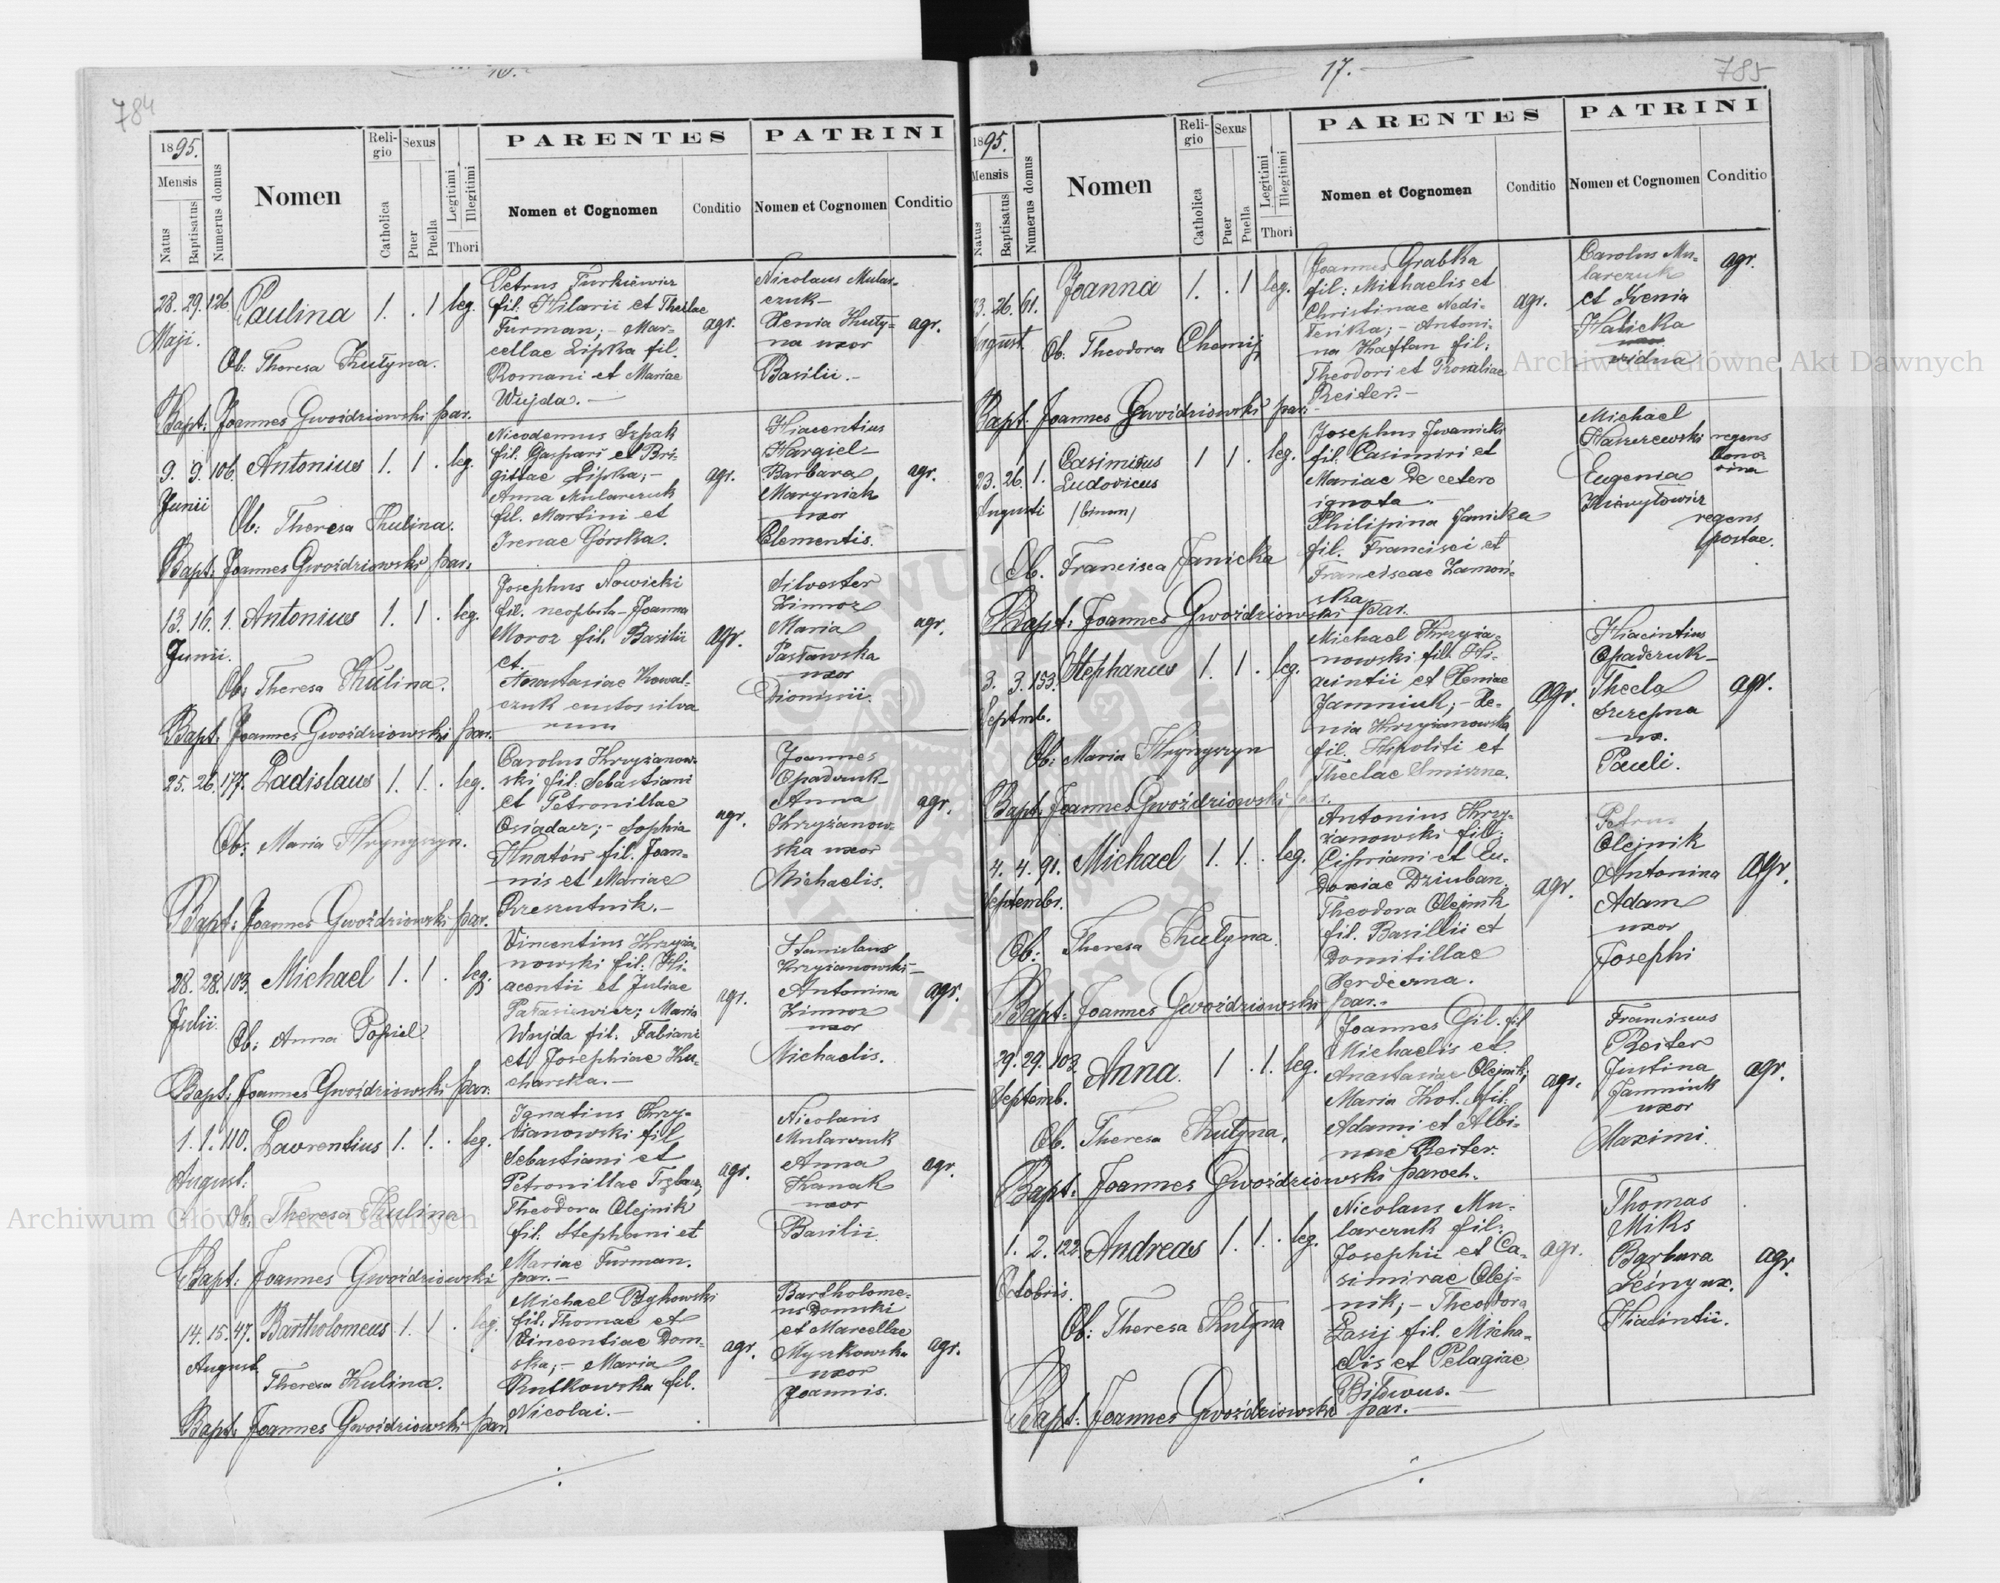 784
16.
1895.
Mensis
Natus
Baptisatus
Numerus domus
Nomen
Religio
Catholica
Sexus
Puer
Puella
Legitimi
Illegitimi
Thori
PARENTES
Nomen et Cognomen
Conditio
PATRINI
Nomen et Cognomen
Conditio
28. 29. 126. Paulina 1. . 1 leg.
Maji.
Ob: Theresa Kutyna.
Bapt: Joannes Gwoździowski par.
Petrus Turkiewicz
fil. Hilarii et Theclae
Furman; – Mar-
cellae Lipka fil.
Romani et Mariae
Wujda. –
agr.
Nicolaus Mular-
czuk –
Xenia Kuty-
na uxor
Basilii. –
agr.
9. 9. 106. Antonius 1. 1 . leg.
Junii
Ob: Theresa Kulina.
Bapt: Joannes Gwoździowski par.
Nicodemus Szpak
fil. Gaspari et Bri-
gittae Lipka; –
Anna Mularczuk
fil. Martini et
Irenae Górska.
agr.
Hiacentius
Hargiel –
Barbara
Maryniak
uxor
Clementis.
agr.
13. 16. 1. Antonius 1. 1 . leg.
Junii.
Ob: Theresa Kulina.
Bapt: Joannes Gwoździowski par.
Josephus Nowicki
fil. neophyta – Joanna
Moroz fil. Basilii
et
Anastasiae Kowal-
czuk custos silva
rum
agr.
Silvester
Zimroz
Maria
Pasławska
uxor
Dionisii.
agr.
25. 26. 177. Ladislaus 1. 1. . leg.
Ob: Maria Hryngzyn.
Bapt: Joannes Gwoździowski par.
Carolus Krzyżanow-
ski fil: Sebastiani
et Petronillae
Osiadacz; – Sophia
Knatów fil. Joan-
nis et Mariae
Krzesutnik. –
agr.
Joannes
Opadczuk –
Anna
Krzyżanow-
ska uxor
Michaelis.
agr.
28. 28. 103. Michael 1. 1 . leg.
Julii.
Ob: Anna Popiel.
Bapt: Joannes Gwoździowski par.
Vincentius Krzyża-
nowski fil: Hi-
acentii et Juliae
Patasiewicz; Maria
Wujda fil. Fabiani
et Josephiae Ku-
charska. –
agr.
Stanislaus
Krzyżanowski –
Antonina
Zimroz
uxor
Michaelis.
agr.
1. 1. 110. Lavrentius 1. 1. . leg.
August.
Ob: Theresa Kulina
Bapt: Joannes Gwoździowski par. –
Ignatius Krzy-
żanowski fil
Sebastiani et
Petronillae Trębacz,
Theodora Olejnik
fil: Stephani et
Mariae Furman.
agr.
Nicolaus
Mularczuk
Anna
Hanak
uxor
Basilii
agr.
14. 15. 47. Bartholomeus 1. 1 . leg.
August.
Theresa Kulina.
Bapt: Joannes Gwoździowski par.
Michael Bykowski
fil: Thomae et
Vincentiae Dom-
ska; – Maria
Rutkowska fil.
Nicolai. –
agr.
Bartholome-
us Domski
et Marcella
Myszkowska
uxor
Joannis.
agr.
785
17.
1895.
Mensis
Natus
Baptisatus
Numerus domus
Nomen
Religio
Catholica
Sexus
Puer
Puella
Legitimi
Illegitimi
Thori
PARENTES
Nomen et Cognomen
Conditio
PATRINI
Nomen et Cognomen
Conditio
23. 26. 61. Joanna 1. . 1 leg.
August.
Ob: Theodora Chomij
Bapt: Joannes Gwoździowski par.
Joannes Grabka
fil: Michaelis et
Christinae
Antoni-
na Kaftan fil:
Theodori et Rosaliae
Reiter. –
agr.
Carolus Mu-
larczuk
et Xenia
Halicka
vidua
agr.
23. 26. 1. Casimirus 1 1 . leg.
Ludovicus
Augusti
/binum/
Ob. Francisca Janicka
Bapt: Joannes Gwoździowski par.
Josephus Iwanicki
fil: Casimiri et
Mariae De cetero
ignota –
Philipina Janicka
fil. Francisci et
Franciscae Zamoń-
ska
Michael
regens
Eugenia
regens
postae.
3. 3. 153. Stephanus 1. 1 . leg.
Septemb.
Ob: Maria Hryngszyn
Bapt: Joannes Gwoździowski par.
Michael Krzyża-
nowski fil. Hi-
acintii et Xeniae
Jamniuk; – Xe-
nia Krzyżanowska
fil. Hipoliti et
Theclae Smiszna.
agr.
Hiacintius
Opadczuk –
Thecla
Szczepna
ux.
Pauli.
agr.
4. 4. 91. Michael 1. 1. . leg.
Septembr.
Ob: Theresa Kutyna.
Bapt: Joannes Gwoździowski par. –
Antonius Krzy-
żanowski fil:
Cipriani et Eu-
doxiae Dziuban.
Theodora Olejnik
fil. Basilii et
Domitillae
Serdeczna.
agr.
Petrus
Olejnik
Antonina
Adam
uxor
Josephi
agr.
29. 29. 103. Anna. 1 . 1. leg.
Septemb.
Ob. Theresa Kutyna.
Bapt: Joannes Gwoździowski paroch.
Joannes Gil. fil
Michaelis et
Anastasiae Olejnik;
Maria Kot. fil:
Adami et Albi-
nae Reiter.
agr.
Franciscus
Reiter
Justina
Jamniuk
uxor
Maximi.
agr.
1. 2. 122. Andreas 1. 1. . leg.
Octobris.
Ob: Theresa Kutyna
Bapt: Joannes Gwoździowski par. –
Nicolaus Mu-
larczuk fil:
Josephi et Ca-
simirae Olej-
nik; – Theodora
Łasij fil. Micha-
elis et Pelagiae
Biłwus. –
agr.
Thomas
Miks
Barbara
Leśny ux.
Hiacintii.
agr.
Archiwum Główne Akt Dawnych
Archiwum Główne Akt Dawnych